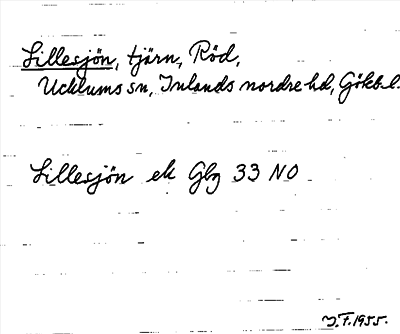 Lillesjön, tjärn, Röd,
Ucklums sn, Inlands nordre hd, Götb. l.
Lillesjön ek Gbg 33 NO
J.F. 1955.